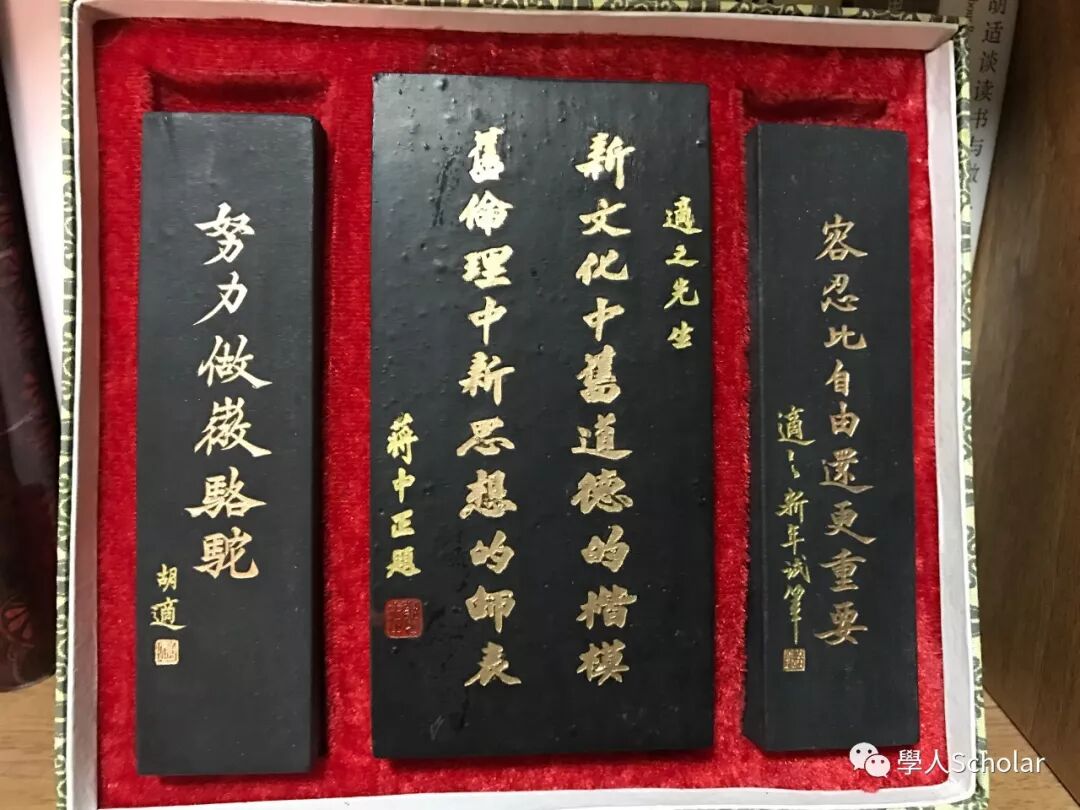 容忍比自由還更重要
適之新年試筆
適之先生
新文化中舊道德的楷模
舊倫理中新思想的師表
蔣中正題
努力做徽駱駝
胡適
胡适谈读书与做
學人Scholar